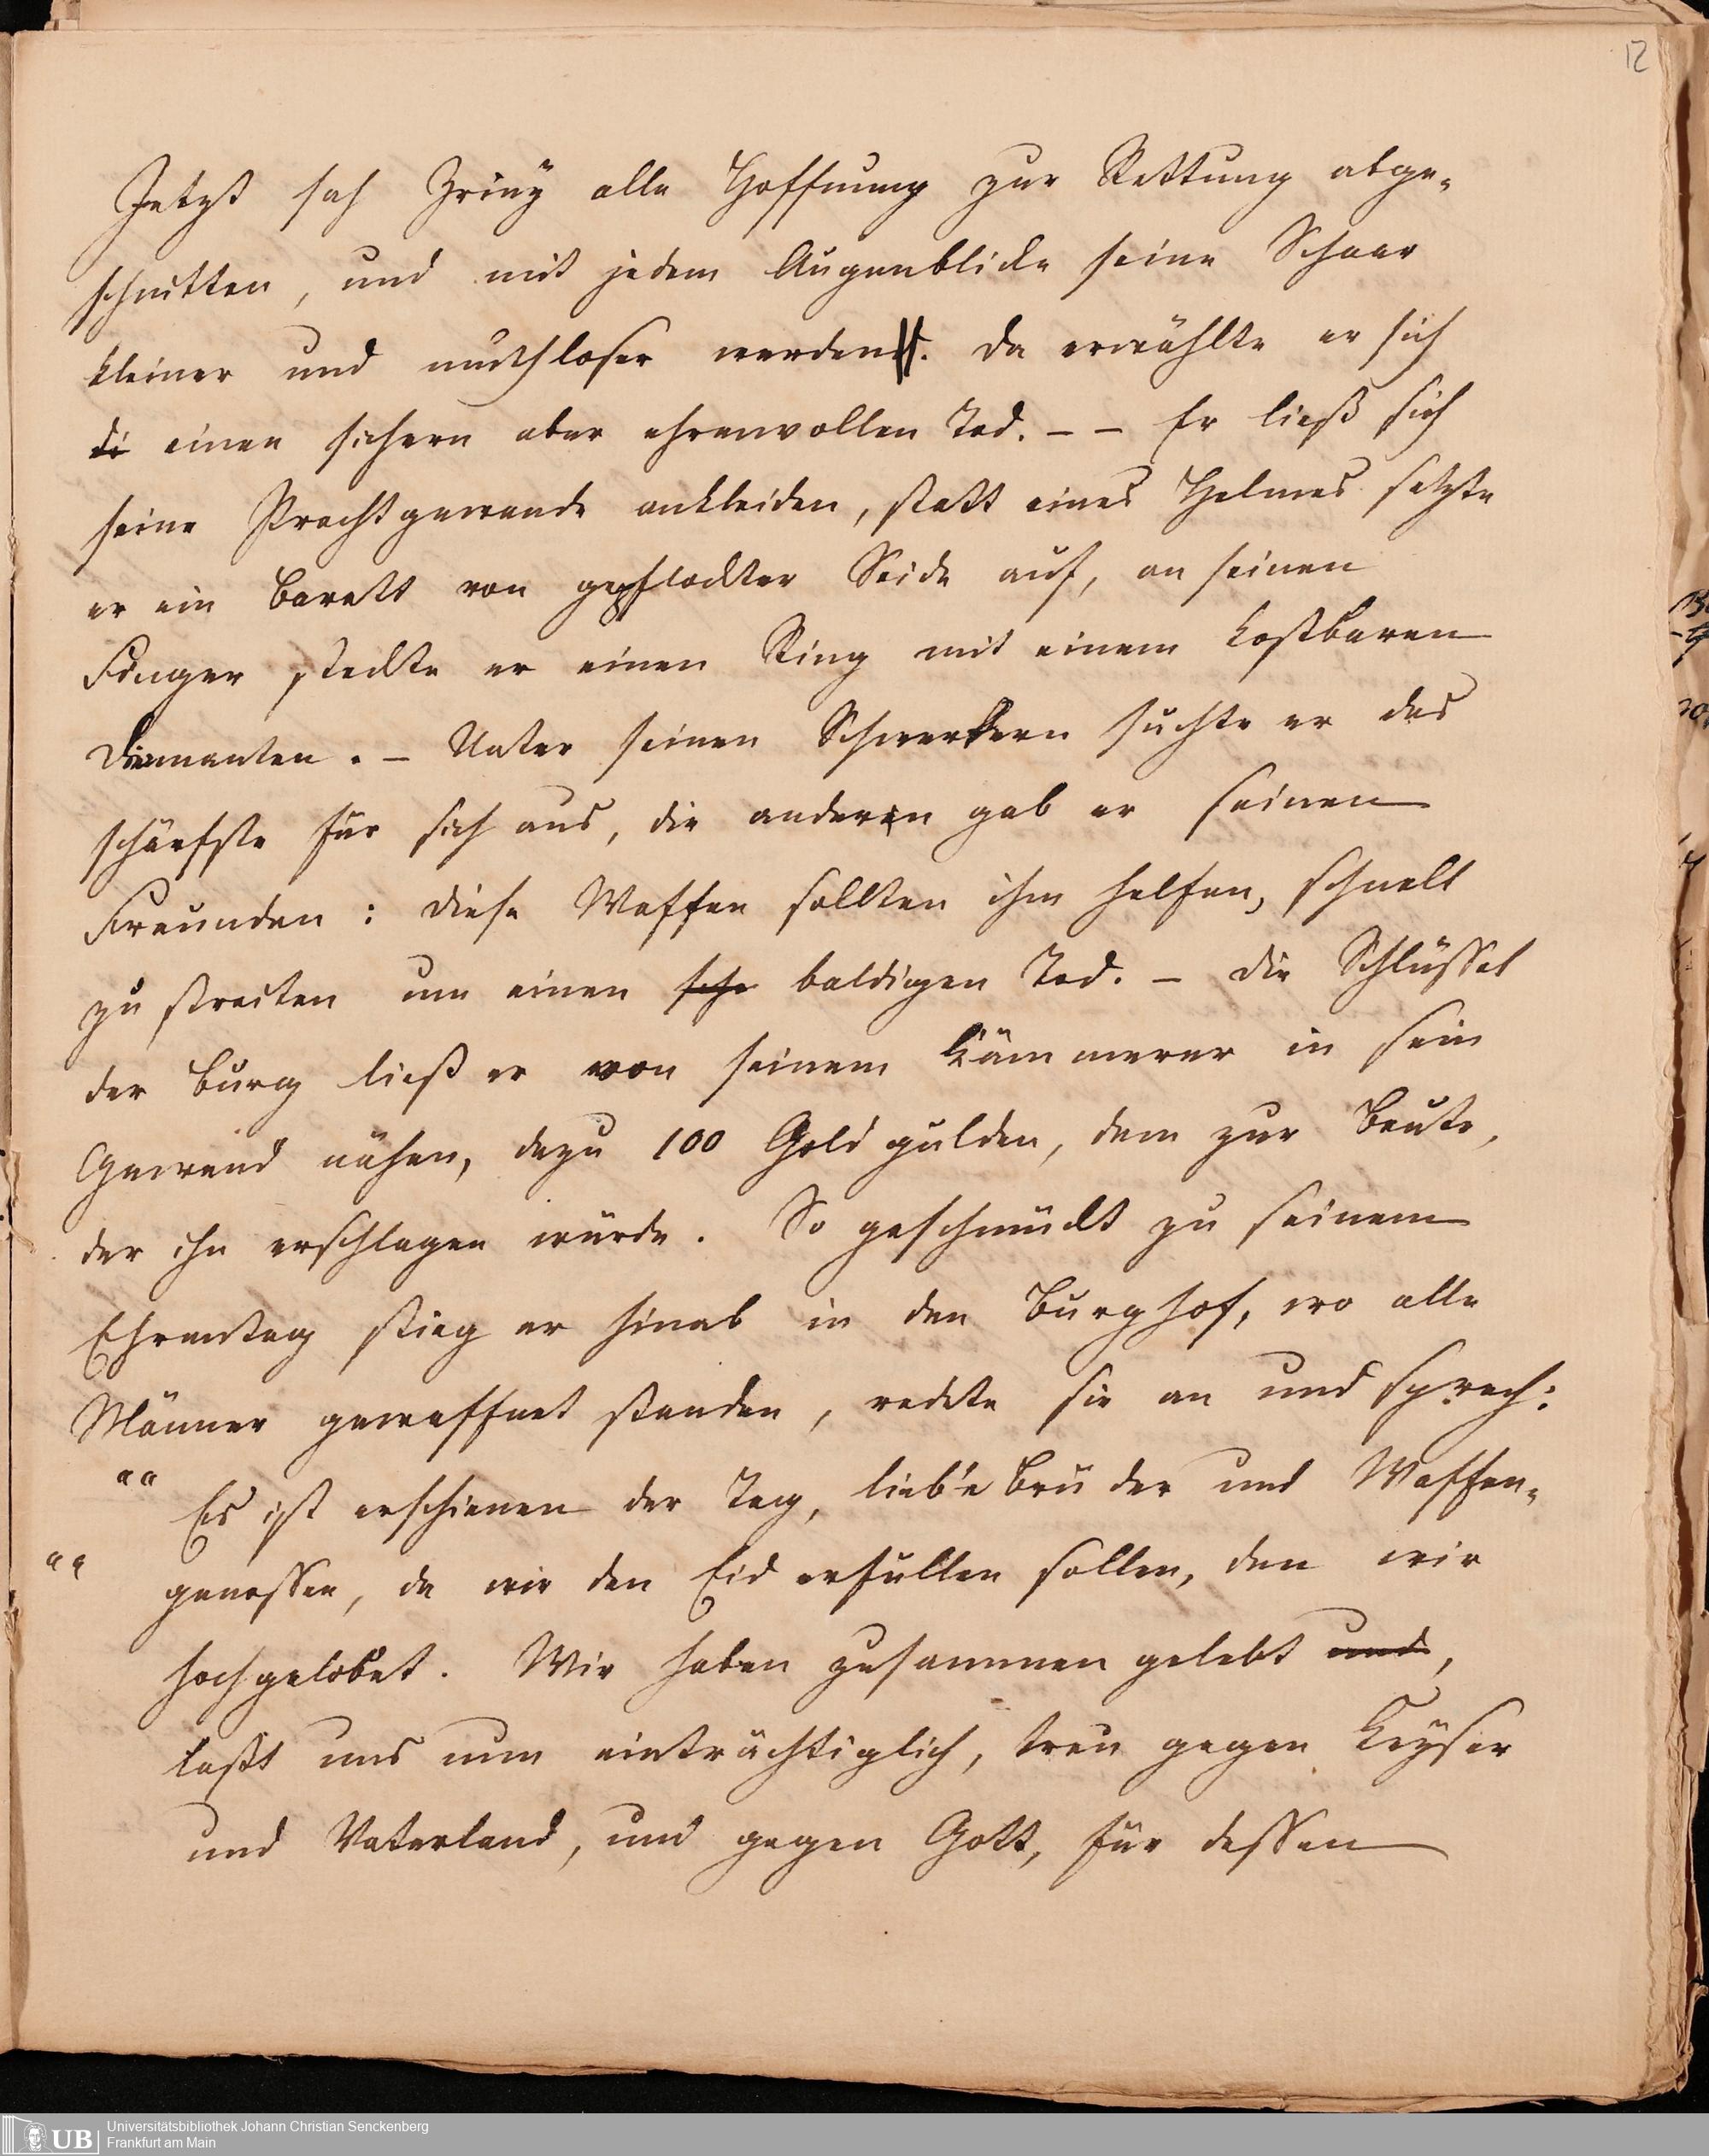 12
Jetzt sah Zriny alle Hoffnung zur Rettung abge-
schnitten, und mit jedem Augenblicke seine Schaar
kleiner und muthloser werden. Da erwählte er sich
di einen sichern aber ehrenvollen Tod. – – Er ließ sich
seine Prachtgewande ankleiden, statt eines Helmes setzte
er ein Barett von geflockter Seide auf, an seinen
Finger steckte er einen Ring mit einem kostbaren
Diamanten. – Unter seinen Schwertern suchte er das
schärfste für sich aus, die andern gab er seinen
Freunden: diese Waffen sollten ihm helfen, schnell
zu streiten um einen baldigen Tod. – Die Schlüssel
der Burg ließ er von seinem Kämmerer in sein
Gewand nähen, dazu 100 Goldgulden, dem zur Beute,
der ihn erschlagen würde. So geschmückt zu seinem
Ehrentag stieg er hinab in den Burghof, wo alle
Männer gewaffnet standen, redete sie an und sprach:
"Es ist erschienen der Tag, liebe Brüder und Waffen-
"genossen, da wir den Eid erfüllen sollen, den wir
hochgelobet. Wir haben zusammen gelebt und,
laßt uns nun einträchtiglich, treu gegen Keyser
und Vaterland, und gegen Gott, für dessen
UB
Universitätsbibliothek Johann Christian Senckenberg
Frankfurt am Main